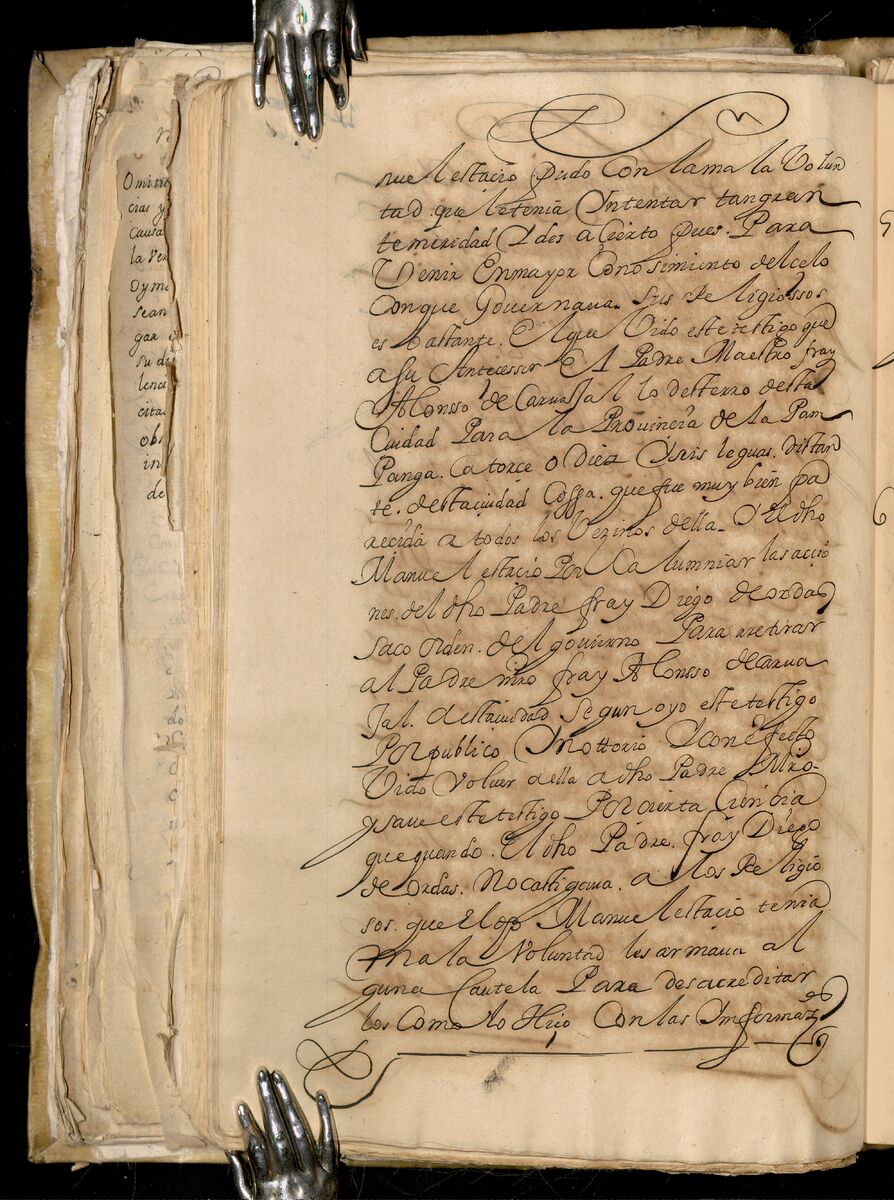 nuel estacio pudo con la mala Volun
tad que le tenia Yntentar tan gran
temeridad Y des acierto pues. Para
Venir En mayor Conosimiento del celo
con que Gouernaua. sus Religiossos
es bastante. El que Vido este testigo que
a su Antecessor El Padre Maestro fray
Alonsso de Caruajal lo desterro desta
Ciudad Para la Prouincia de la Pam
Panga. Catorce o Diez Y seis leguas. distan
te. desta ciudad Cossa. que fue muy bien pa
recida a todos los Vezinos della. Y El dho
Manuel estacio Por Calumniar las accio
nes. del dho Padre fray Diego de ordas
saco orden. del gouierno Para retirar
al Padre mro fray Alonsso de Carua
Jal. desta ciudad segun oyo este testigo
Por publico Y nottorio Y con efecto
Vido Voluer a ella a dho Padre Mro-
y saue este testigo Por cierta Ciencia
que quando. El dho Padre. fray Diego
de Ordas. No castigaua. a los Religio
sos. que El dho Manuel estacio tenia
mala Voluntad les armaua al
guna Cautela Para desacreditar
los Como lo Hiço Con las Ynformaz
Omitie
cias y
Causa
la Ver
Oy mi
sean
gar
su di
lenc
cita
obs
in
de